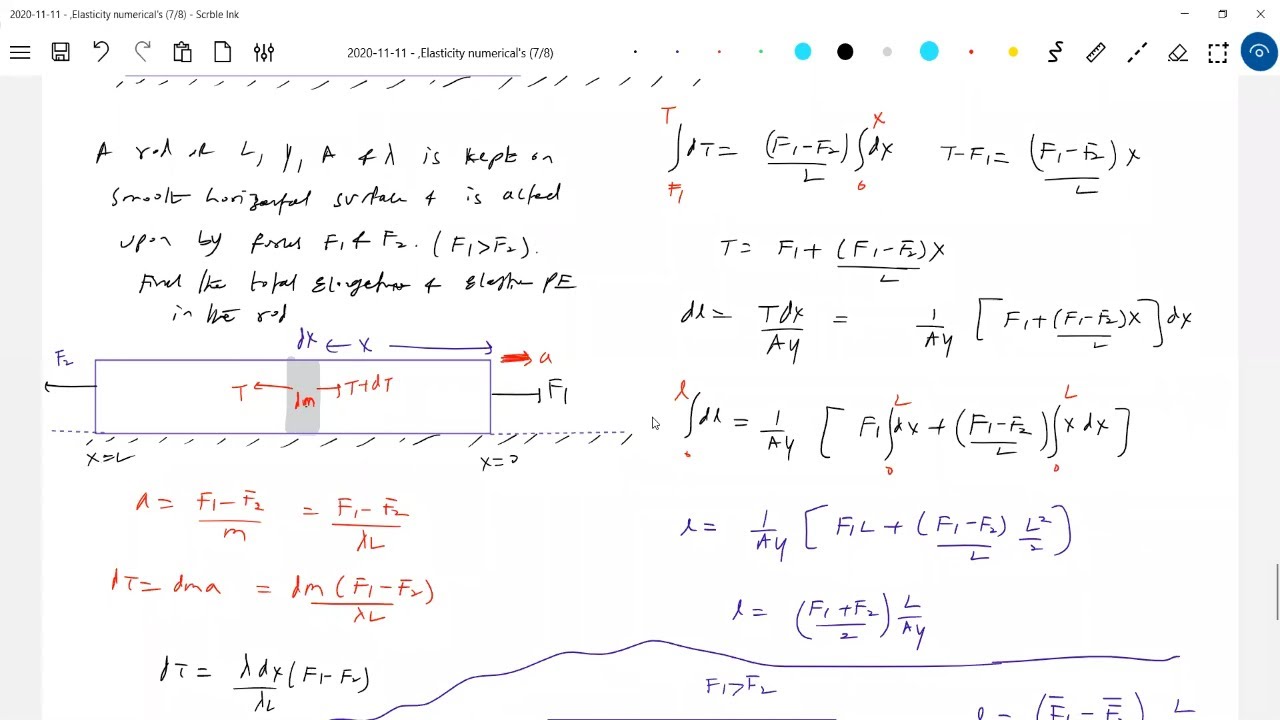 2020-11-11 - ,Elasticity numerical's (7/8) - Scrble Ink
2020-11-11 - ,Elasticity numerical's (7/8)
A rod of L, Y, A & λ is kept on
smooth horizontal surface & is acted
upon by forces F₁ & F₂. (F₁>F₂).
Find the total elongation & elastic PE
in the rod
dx ← x →
F₂
T
dm
T+dT
a
F₁
x=L
x=0
a = (F₁-F₂)/m = (F₁-F₂)/λL
dT = dma = dm(F₁-F₂)/λL
dT = λdx/λL (F₁-F₂)
∫_{F₁}^{T} dT = (F₁-F₂)/L ∫_{0}^{x} dx
T-F₁ = (F₁-F₂)/L x
T = F₁ + (F₁-F₂)x/L
dl = Tdx/AY = 1/AY [F₁ + (F₁-F₂)x/L] dx
∫_{0}^{l} dl = 1/AY [F₁ ∫_{0}^{L} dx + (F₁-F₂)/L ∫_{0}^{L} x dx]
l = 1/AY [F₁L + (F₁-F₂)/L L²/2]
l = (F₁+F₂)/2 L/AY
F₁>F₂